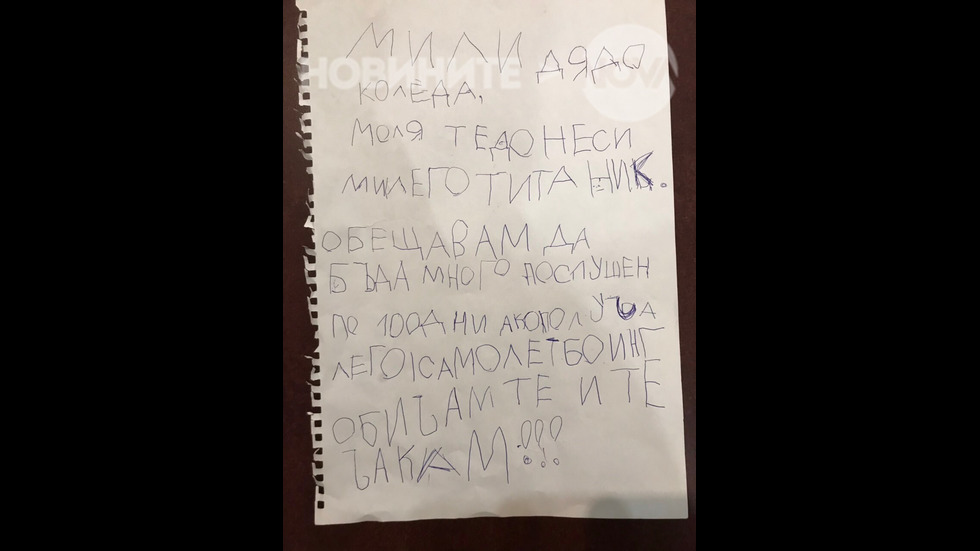 МИЛИ ДЯДО
КОЛЕДА,
МОЛЯ ТЕ ДОНЕСИ
МИ ЛЕГО ТИТАНИК.
ОБЕЩАВАМ ДА
БЪДА МНОГО ПОСЛУШЕН
ПО 100 ДНИ АКО ПОЛУЪА
ЛЕГО И САМОЛЕТ БОИНГ
ОБИЪАМ ТЕ И ТЕ
ЪАКАМ!!!
НОВИНИТЕ
NOVA